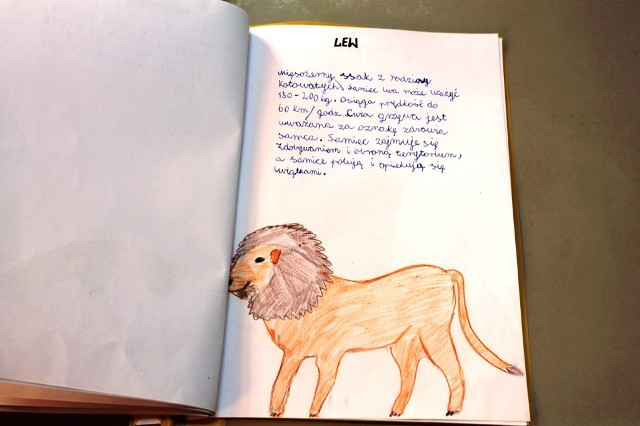 LEW
mięsożerny ssak z rodziny
kotowatych, samiec lwa może ważyć
180-200 kg. Osiąga prędkość do
60 km/godz. Lwia grzywa jest
uważana za oznakę zdrowia
samca. Samiec zajmuje się
zdobywaniem i obroną terytorium,
a samice polują i opiekują się
lwiątkami.